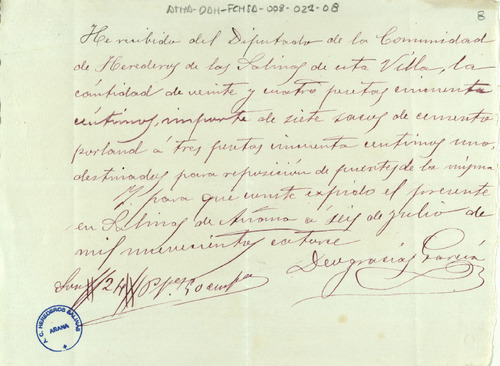 ATHA-DAH-FCHSA-008-021-08
8
He recibido del Diputado de la Comunidad
de Herederos de las Salinas de esta Villa, la
cantidad de veinte y cuatro pesetas cincuenta
céntimos, importe de siete sacos de cemento
porland á tres pesetas cincuenta centimos uno,
destinados para reposición de puentes de la misma
Y para que conste expido el presente
en Salinas de Añana á seis de julio de
mil nuevecientos catorce
Deogracias García
Son # 24 # Ptas 50
Y. C. HEREDEROS SALINAS
AÑANA